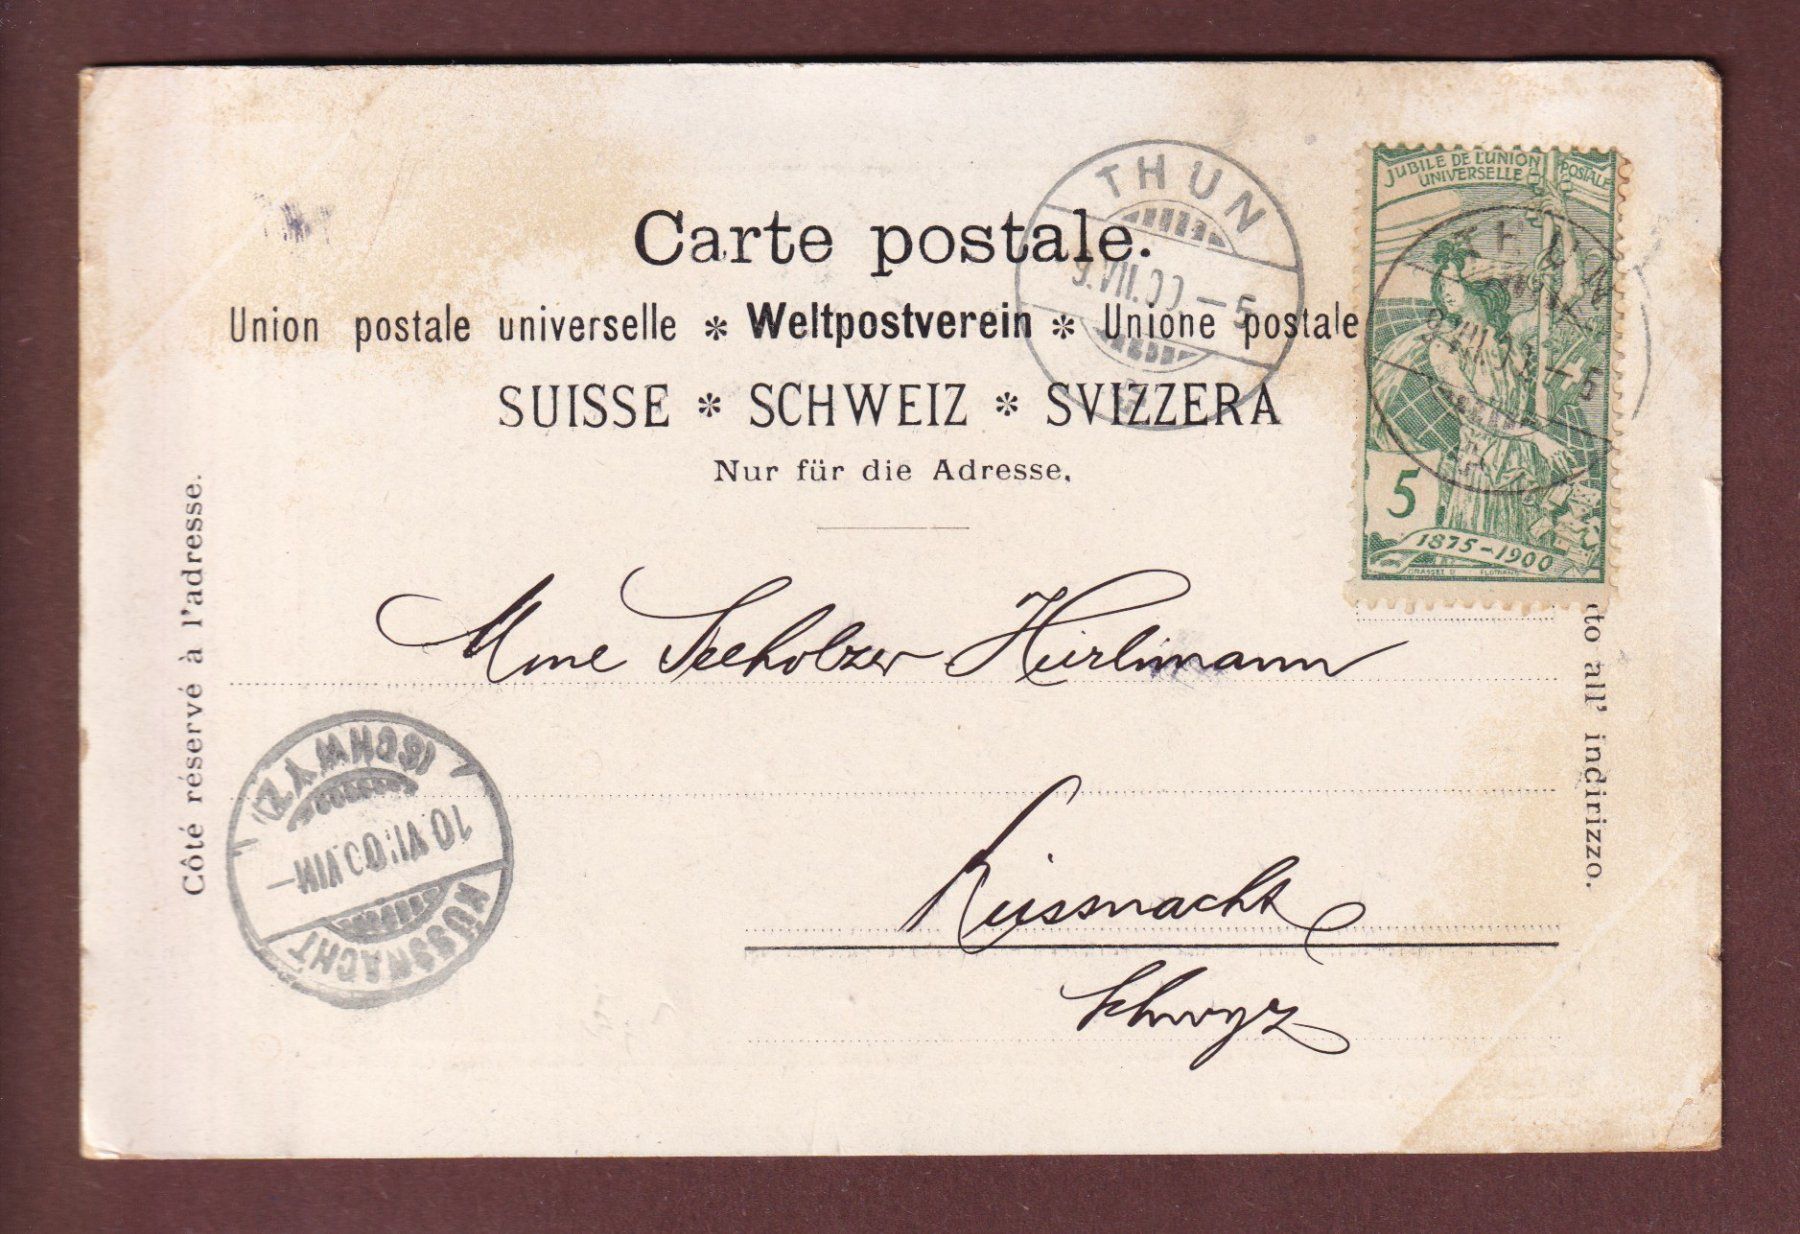 JUBILÉ DE L'UNION POSTALE
UNIVERSELLE
THUN
Carte postale.
Union postale universelle * Weltpostverein * Unione postale
SUISSE * SCHWEIZ * SVIZZERA
Nur für die Adresse.
THUN
5
1875-1900
GRASSET
Côté réservé à l'adresse.
Mme Seeholzer Hürlimann
all' indirizzo.
(SCHWYZ)
10.VII.00.VIII—
KÜSSNACHT
Küssnacht
Schwyz